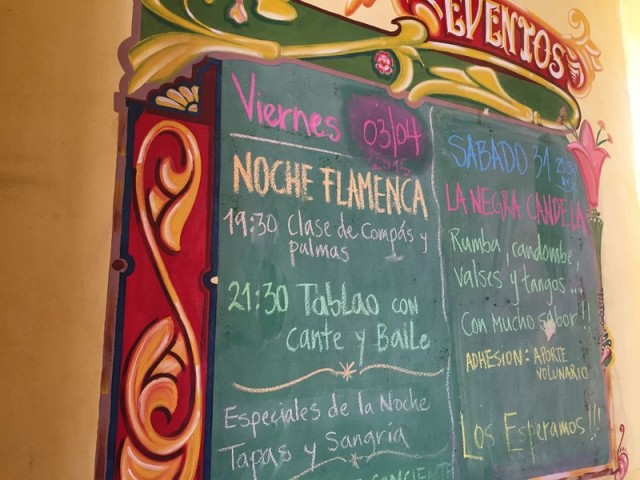 EVENTOS
Viernes 03/04
2015
NOCHE FLAMENCA
19:30 Clase de Compás y
palmas
21:30 Tablao con
cante y Baile
Especiales de la Noche
Tapas y Sangría
SABADO
LA NEGRA CANDELA
Rumba, candombe
valses y tangos...
Con mucho sabor!!
ADHESION: APORTE
VOLUNARIO
Los Esperamos!!!